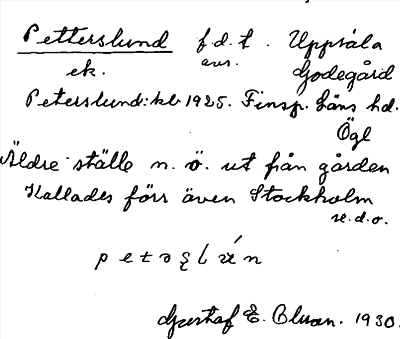 Petterslund f.d.t. Uppsala
avs.
ek. Godegård
Peterslund: kb 1925. Finsp. läns hd.
Ögl
Äldre ställe n. ö. ut från gården
Kallades förr även Stockholm
se. d. o.
Gustaf E. Bluan. 1930.